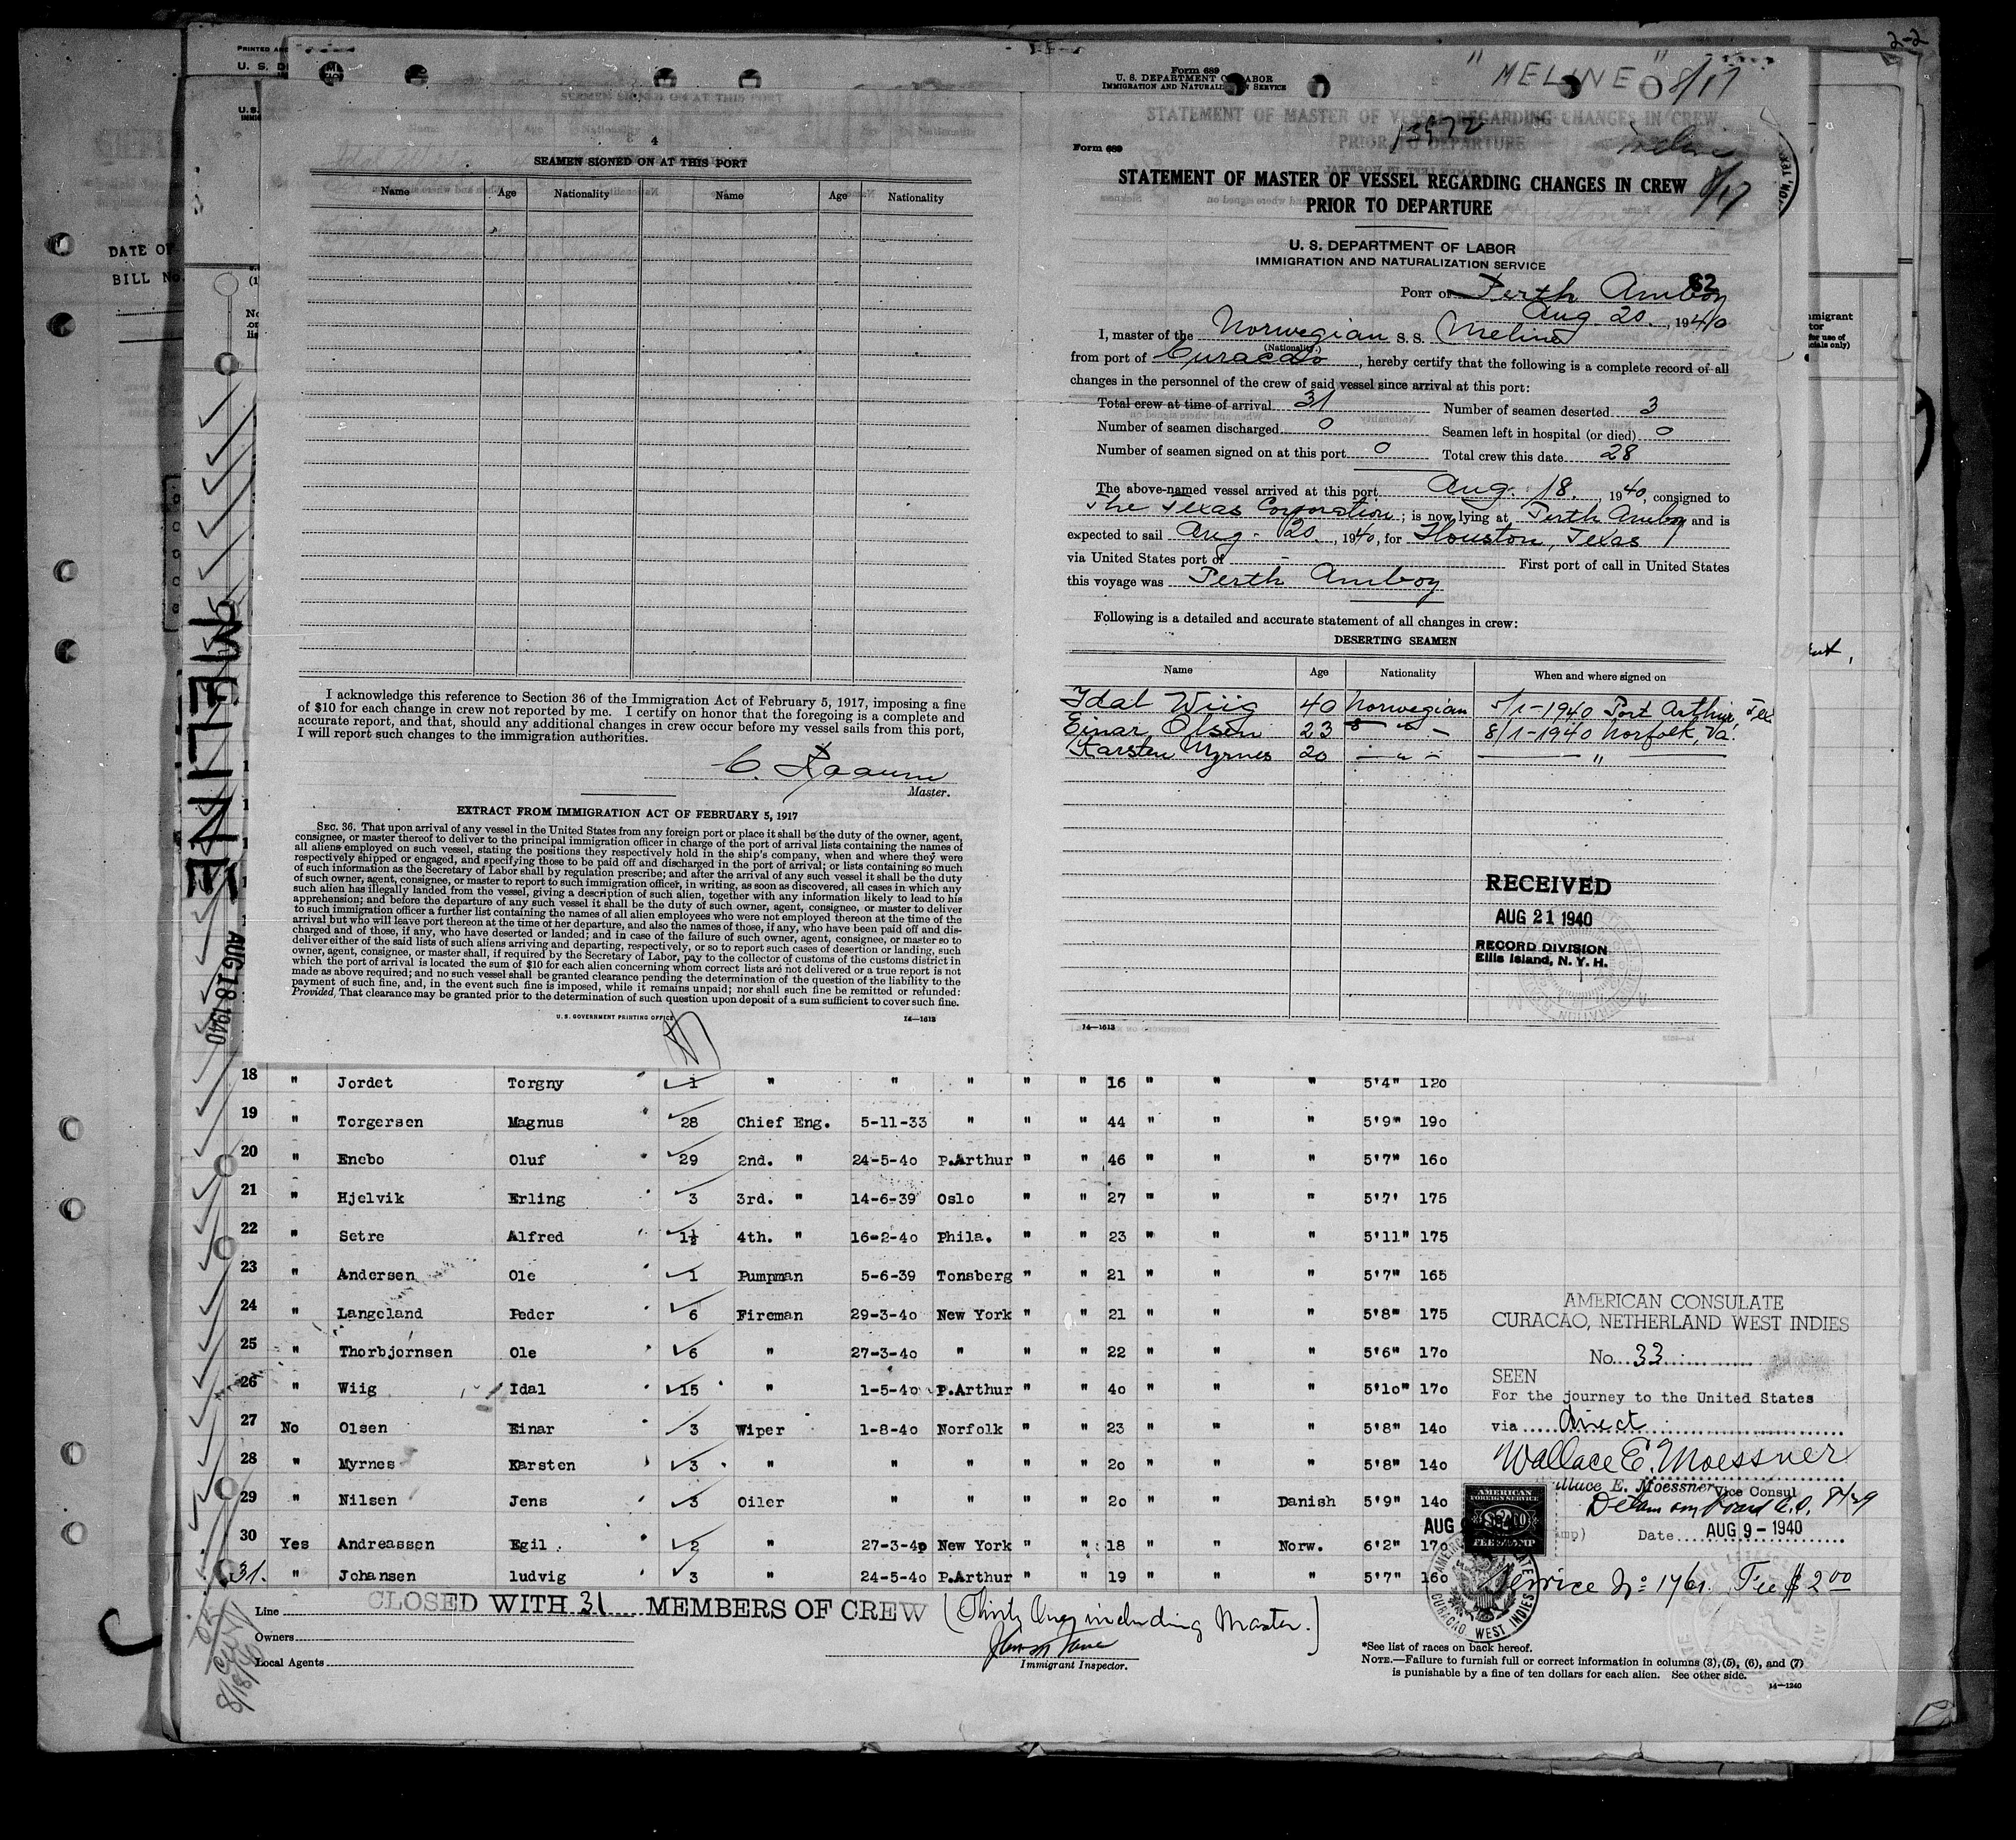 2-2
PRINTED
U. S. D
Form 689
U. S. DEPARTMENT OF LABOR
IMMIGRATION AND NATURALIZATION SERVICE
"MELINE" 8/17
DATE OF
BILL No.
4
SEAMEN SIGNED ON AT THIS PORT
Name Age Nationality Name Age Nationality
I acknowledge this reference to Section 36 of the Immigration Act of February 5, 1917, imposing a fine
of $10 for each change in crew not reported by me. I certify on honor that the foregoing is a complete and
accurate report, and that, should any additional changes in crew occur before my vessel sails from this port,
I will report such changes to the immigration authorities.
Master.
EXTRACT FROM IMMIGRATION ACT OF FEBRUARY 5, 1917
SEC. 36. That upon arrival of any vessel in the United States from any foreign port or place it shall be the duty of the owner, agent,
consignee, or master thereof to deliver to the principal immigration officer in charge of the port of arrival lists containing the names of
all aliens employed on such vessel, stating the positions they respectively hold in the ship's company, when and where they were
respectively shipped or engaged, and specifying those to be paid off and discharged in the port of arrival; or lists containing so much
of such information as the Secretary of Labor shall by regulation prescribe; and after the arrival of any such vessel it shall be the duty
of such owner, agent, consignee, or master to report to such immigration officer, in writing, as soon as discovered, all cases in which any
such alien has illegally landed from the vessel, giving a description of such alien, together with any information likely to lead to his
apprehension; and before the departure of any such vessel it shall be the duty of such owner, agent, consignee, or master to deliver
to such immigration officer a further list containing the names of all alien employees who were not employed thereon at the time of the
arrival but who will leave port thereon at the time of her departure, and also the names of those, if any, who have been paid off and dis-
charged and of those, if any, who have deserted or landed; and in case of the failure of such owner, agent, consignee, or master so to
deliver either of the said lists of such aliens arriving and departing, respectively, or so to report such cases of desertion or landing, such
owner, agent, consignee, or master shall, if required by the Secretary of Labor, pay to the collector of customs of the customs district in
which the port of arrival is located the sum of $10 for each alien concerning whom correct lists are not delivered or a true report is not
made as above required; and no such vessel shall be granted clearance pending the determination of the question of the liability to the
payment of such fine, and, in the event such fine is imposed, while it remains unpaid; nor shall such fine be remitted or refunded:
Provided, That clearance may be granted prior to the determination of such question upon deposit of a sum sufficient to cover such fine.
U. S. GOVERNMENT PRINTING OFFICE 14—1613
Form 689
Meline
8/17
STATEMENT OF MASTER OF VESSEL REGARDING CHANGES IN CREW
PRIOR TO DEPARTURE
U. S. DEPARTMENT OF LABOR
IMMIGRATION AND NATURALIZATION SERVICE
62
PORT OF Perth Amboy
Aug 20., 1940
I, master of the Norwegian S. S. Meline
(Nationality.)
from port of Curacao, hereby certify that the following is a complete record of all
changes in the personnel of the crew of said vessel since arrival at this port:
Total crew at time of arrival 31 Number of seamen deserted 3
Number of seamen discharged 0 Seamen left in hospital (or died) 0
Number of seamen signed on at this port 0 Total crew this date 28
The above-named vessel arrived at this port Aug. 18., 1940, consigned to
The Texas Corporation; is now lying at Perth Amboy and is
expected to sail Aug. 20., 1940, for Houston, Texas
via United States port of - First port of call in United States
this voyage was Perth Amboy
Following is a detailed and accurate statement of all changes in crew:
DESERTING SEAMEN
Name Age Nationality When and where signed on
Idal Wiig 40 Norwegian 5/1-1940 Port Arthur, Tex.
Einar Olsen 23 " 8/1-1940 Norfolk, Va.
Karsten Myrnes 20 - " - "
RECEIVED
AUG 21 1940
RECORD DIVISION
Ellis Island, N. Y. H.
14—1613
MELINE
AUG 18 1940
18 " Jordet Torgny 1 " " " " " 16 " " " 5'4" 120
19 " Torgersen Magnus 28 Chief Eng. 5-11-33 " " " 44 " " " 5'9" 190
20 " Enebo Oluf 29 2nd. " 24-5-40 P.Arthur " " 46 " " " 5'7" 160
21 " Hjelvik Erling 3 3rd. " 14-6-39 Oslo " " 27 " " " 5'7' 175
22 " Setre Alfred 1½ 4th. " 16-2-40 Phila. " " 23 " " " 5'11" 175
23 " Andersen Ole 1 Pumpman 5-6-39 Tonsberg " " 21 " " " 5'7" 165
24 " Langeland Peder 6 Fireman 29-3-40 New York " " 21 " " " 5'8" 175
25 " Thorbjornsen Ole 6 " 27-3-40 " " " 22 " " " 5'6" 170
26 " Wiig Idal 15 " 1-5-40 P.Arthur " " 40 " " " 5'10" 170
27 No Olsen Einar 3 Wiper 1-8-40 Norfolk " " 23 " " " 5'8" 140
28 " Myrnes Karsten 3 " " " " " 20 " " " 5'8" 140
29 " Nilsen Jens 3 Oiler " " " " 20 " " Danish 5'9" 140
30 Yes Andreassen Egil 2 " 27-3-40 New York " " 18 " " Norw. 6'2" 170
31. " Johansen ludvig 3 " 24-5-40 P.Arthur " " 19 " " " 5'7" 160
AMERICAN CONSULATE
CURACAO, NETHERLAND WEST INDIES
No. 33
SEEN
For the journey to the United States
via direct
Wallace E. Moessner
Wallace E. Moessner Vice Consul
AMERICAN
FOREIGN SERVICE
FEE STAMP
AUG
Date AUG 9 - 1940
Service No 1761. Fee $ 2 00
CURACAO, WEST INDIES
CLOSED WITH 31 MEMBERS OF CREW (Thirty One, including Master.)
Line
Owners
Local Agents
Immigrant Inspector.
*See list of races on back hereof.
NOTE.—Failure to furnish full or correct information in columns (3), (5), (6), and (7)
is punishable by a fine of ten dollars for each alien. See other side.
14—1240